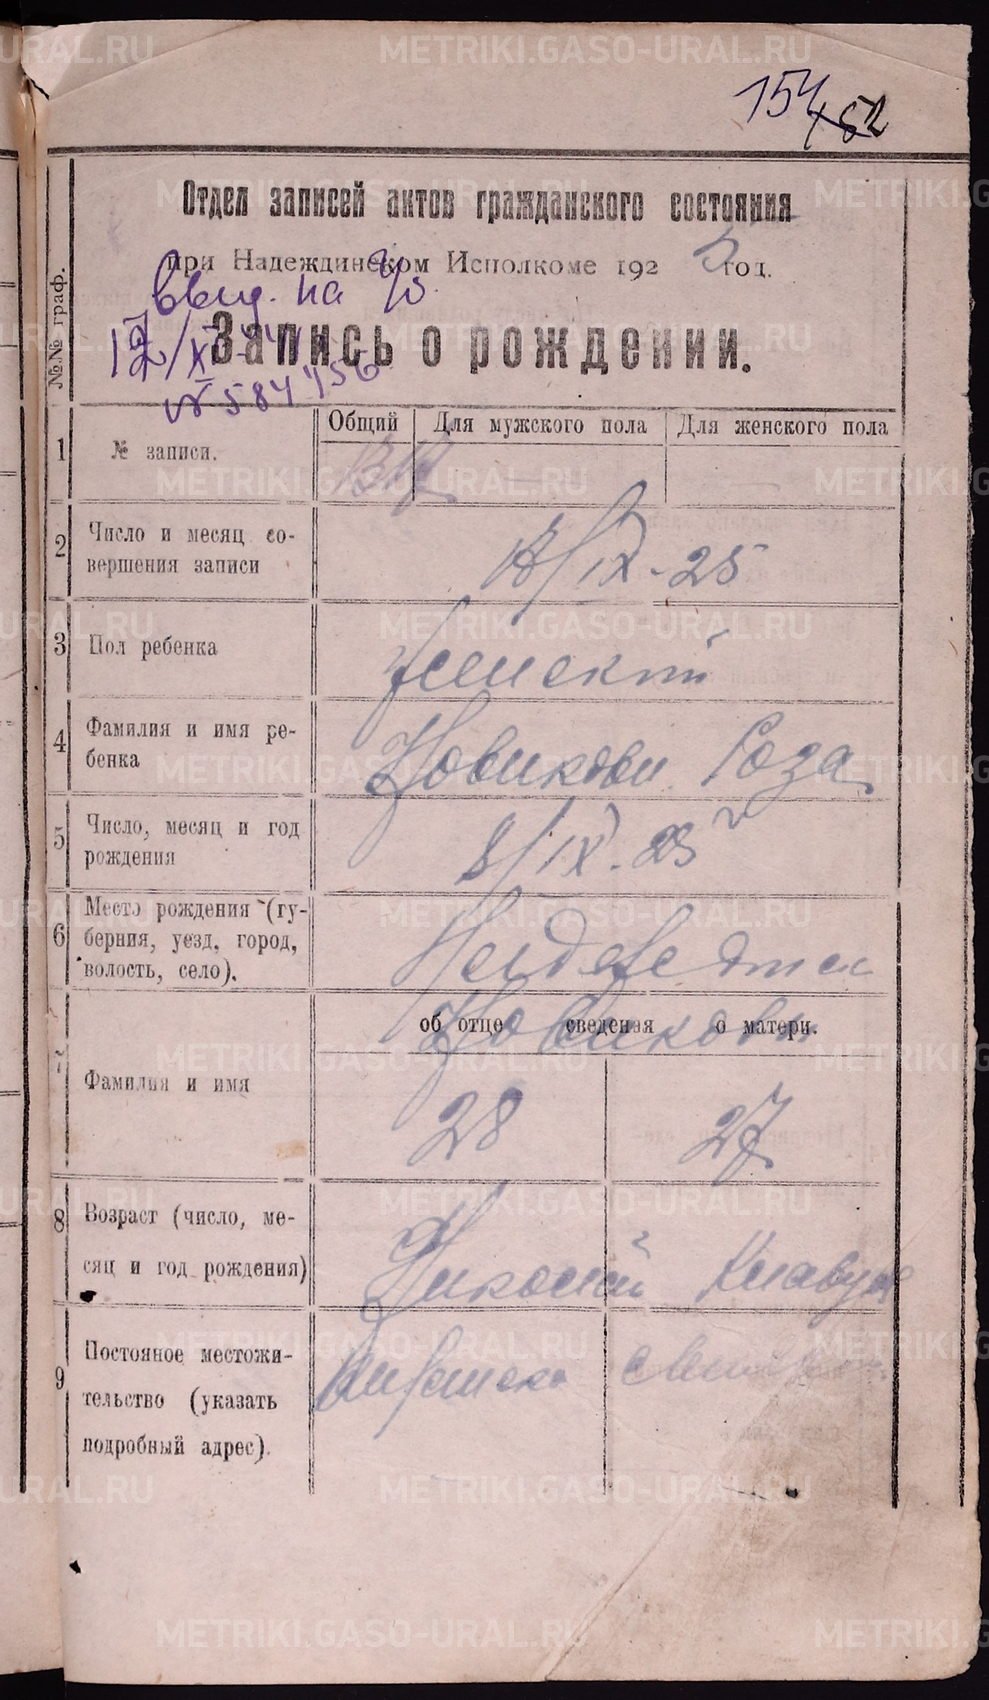 154
152
Отдел записей актов гражданского состояния
при Надеждинском Исполкоме 1925 год.
выд. на
Запись о рождении.
№ 584456
№№ граф.
Общий Для мужского пола Для женского пола
1 № записи.
2 Число и месяц со-
вершения записи
18/IX-25
3 Пол ребенка
женский
4 Фамилия и имя ре-
бенка
Новикова Роза
5 Число, месяц и год
рождения
8/IX-25 г
6 Место рождения (гу-
берния, уезд, город,
волость, село).
Надеждинск
об отце сведения о матери.
Новиковы
7 Фамилия и имя
28 27
8 Возраст (число, ме-
сяц и год рождения)
Николай Клавдия
9 Постоянное местожи-
тельство (указать
подробный адрес).
METRIKI.GASO-URAL.RU